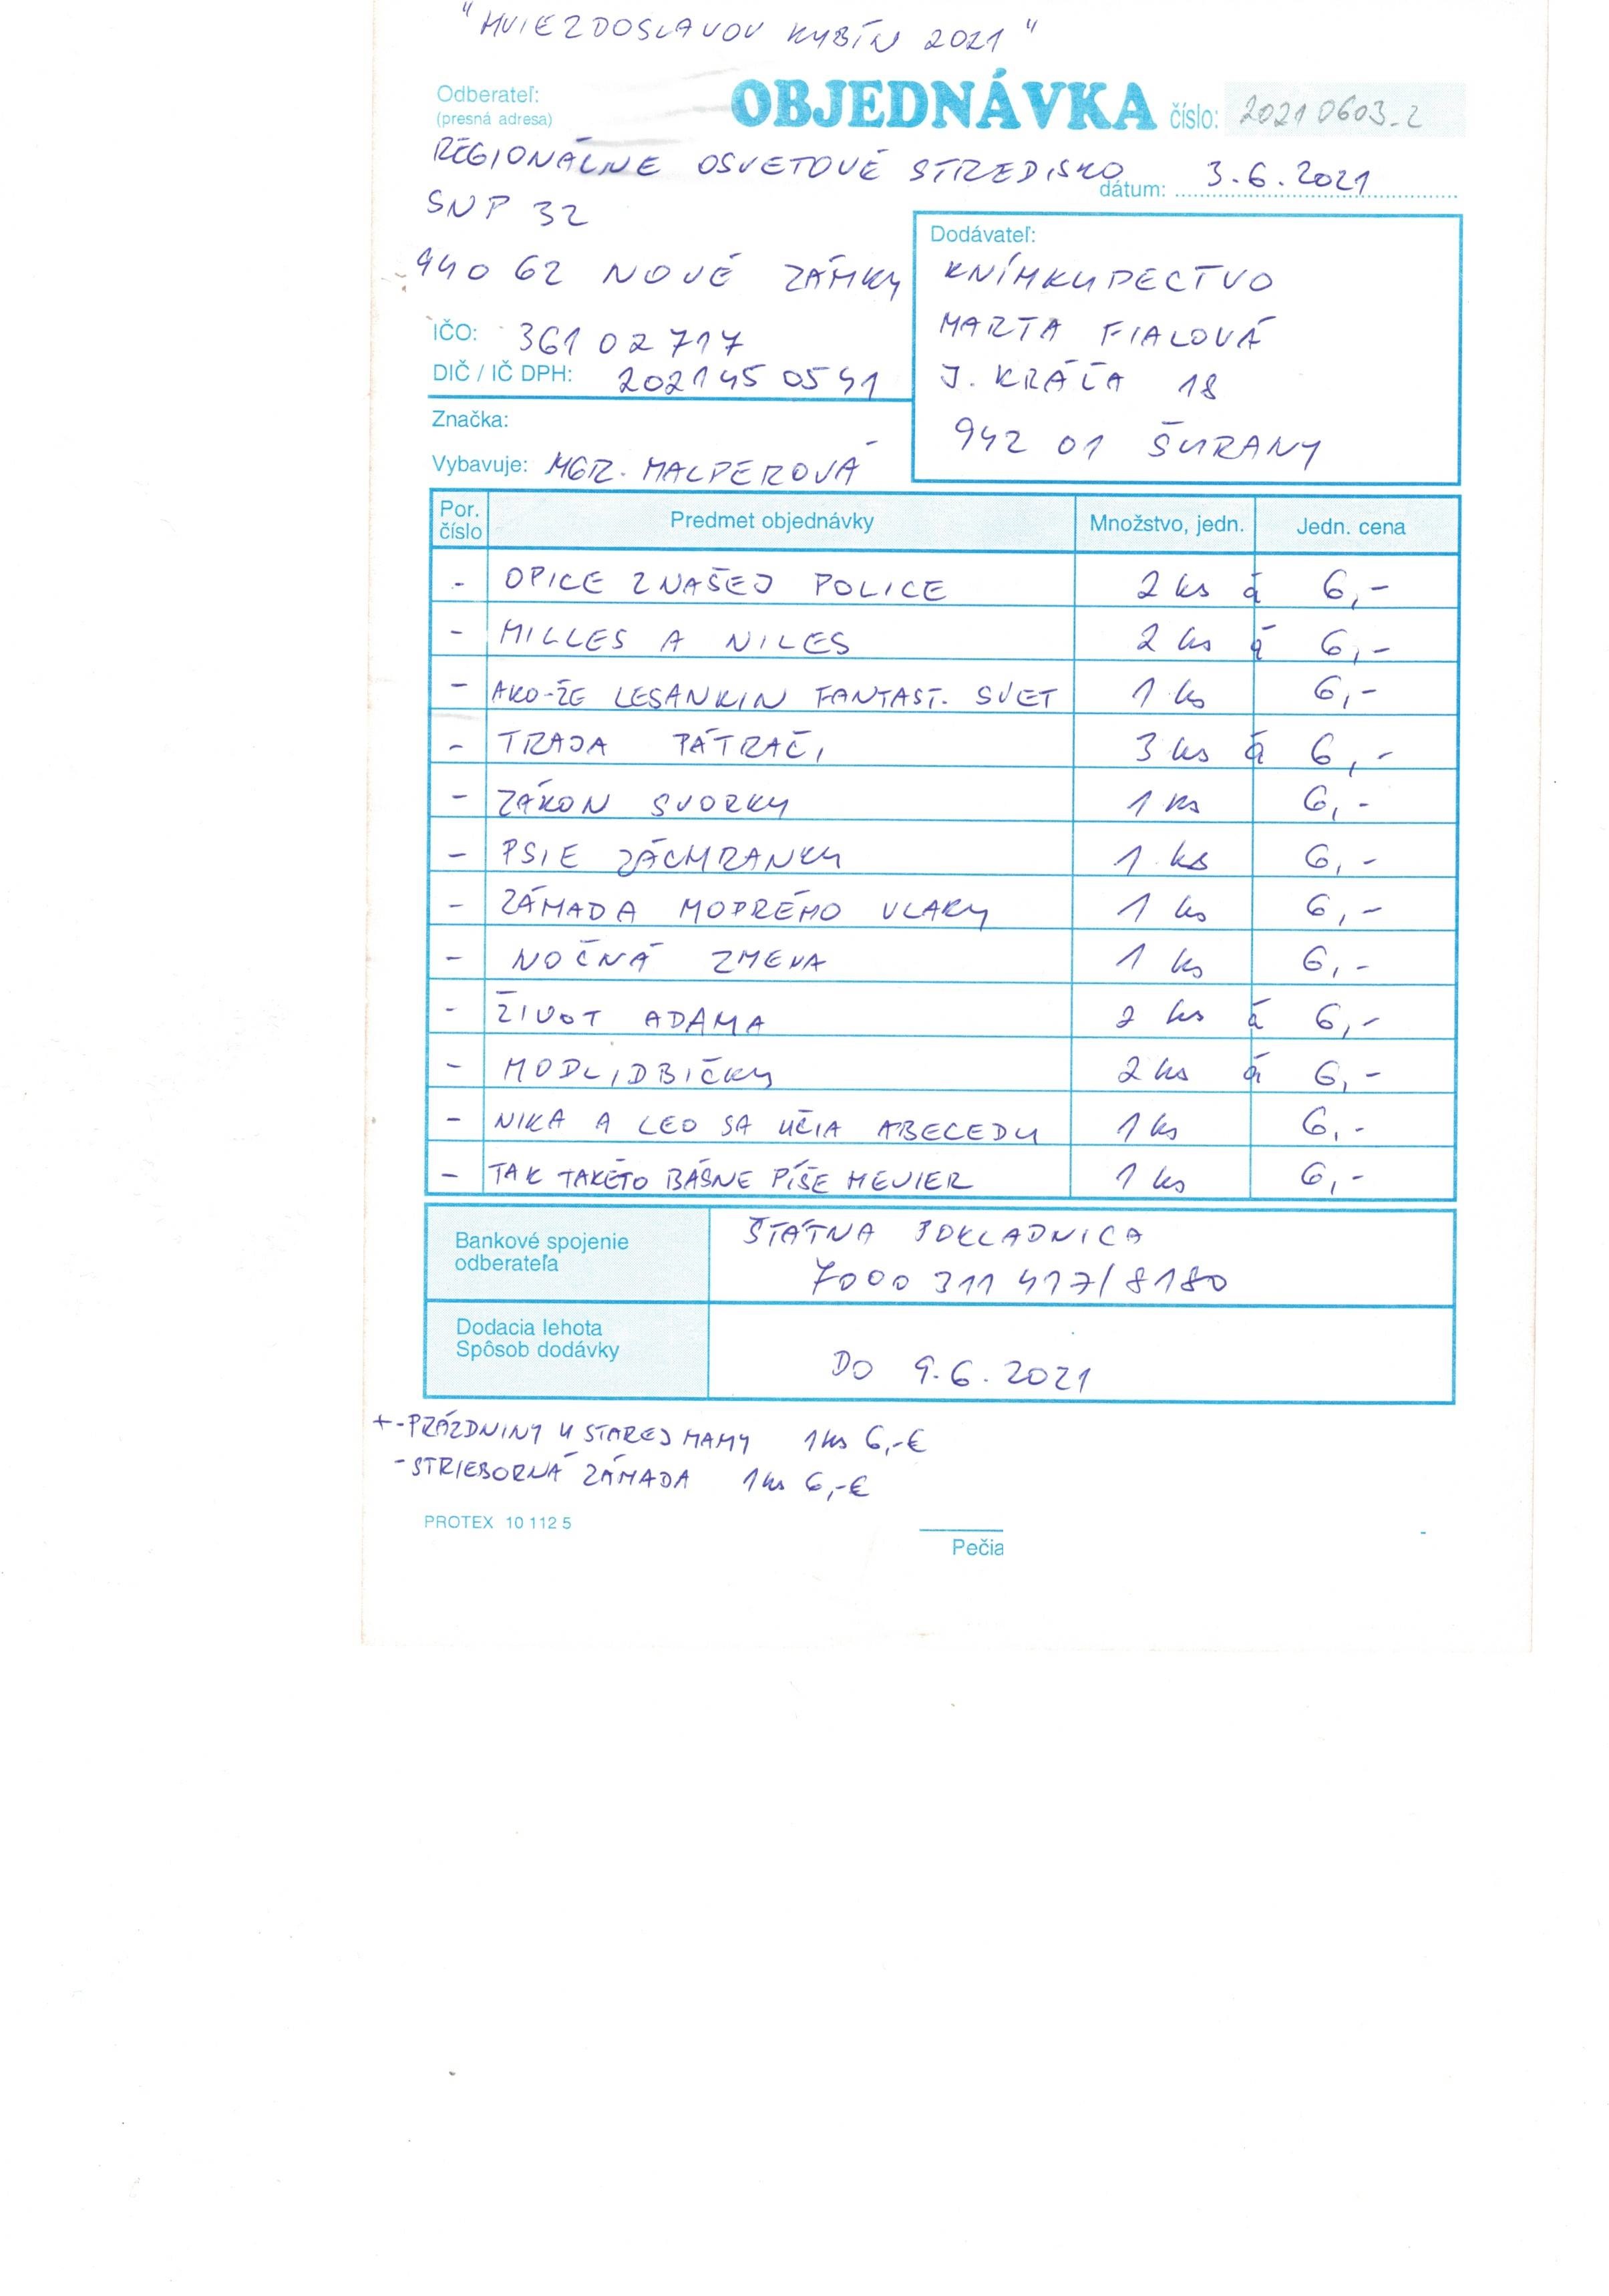 "HVIEZDOSLAVOV KUBÍN 2021"
Odberateľ:
(presná adresa)
OBJEDNÁVKA číslo: 20210603-2
REGIONÁLNE OSVETOVÉ STREDISKO
dátum: 3.6.2021
SNP 32
940 62 NOVÉ ZÁMKY
IČO: 361 02 717
DIČ / IČ DPH: 202145 0541
Značka:
Vybavuje: MGR. HALPEROVÁ
Dodávateľ:
KNÍHKUPECTVO
MARTA FIALOVÁ
J. KRÁĽA 18
942 01 ŠURANY
Por. číslo Predmet objednávky Množstvo, jedn. Jedn. cena
- OPICE Z NAŠEJ POLICE 2 ks á 6,-
- MILLES A NILES 2 ks á 6,-
- AKO-ŽE LESANKIN FANTAST. SVET 1 ks 6,-
- TRAJA PÁTRAČI 3 ks á 6,-
- ZÁKON SVORKY 1 ks 6,-
- PSIE ZÁCHRANKY 1 ks 6,-
- ZÁHADA MODRÉHO VLAKU 1 ks 6,-
- NOČNÁ ZMENA 1 ks 6,-
- ŽIVOT ADAMA 2 ks á 6,-
- MODLIDBIČKY 2 ks á 6,-
- NIKA A LEO SA UČIA ABECEDU 1 ks 6,-
- TAK TAKÉTO BÁSNE PÍŠE HEVIER 1 ks 6,-
Bankové spojenie
odberateľa
ŠTÁTNA POKLADNICA
7000 311 417/8180
Dodacia lehota
Spôsob dodávky
DO 9.6.2021
+-PRÁZDNINY U STAREJ MAMY 1 ks 6,-€
-STRIEBORNÁ ZÁHADA 1 ks 6,-€
PROTEX 10 112 5
Pečia